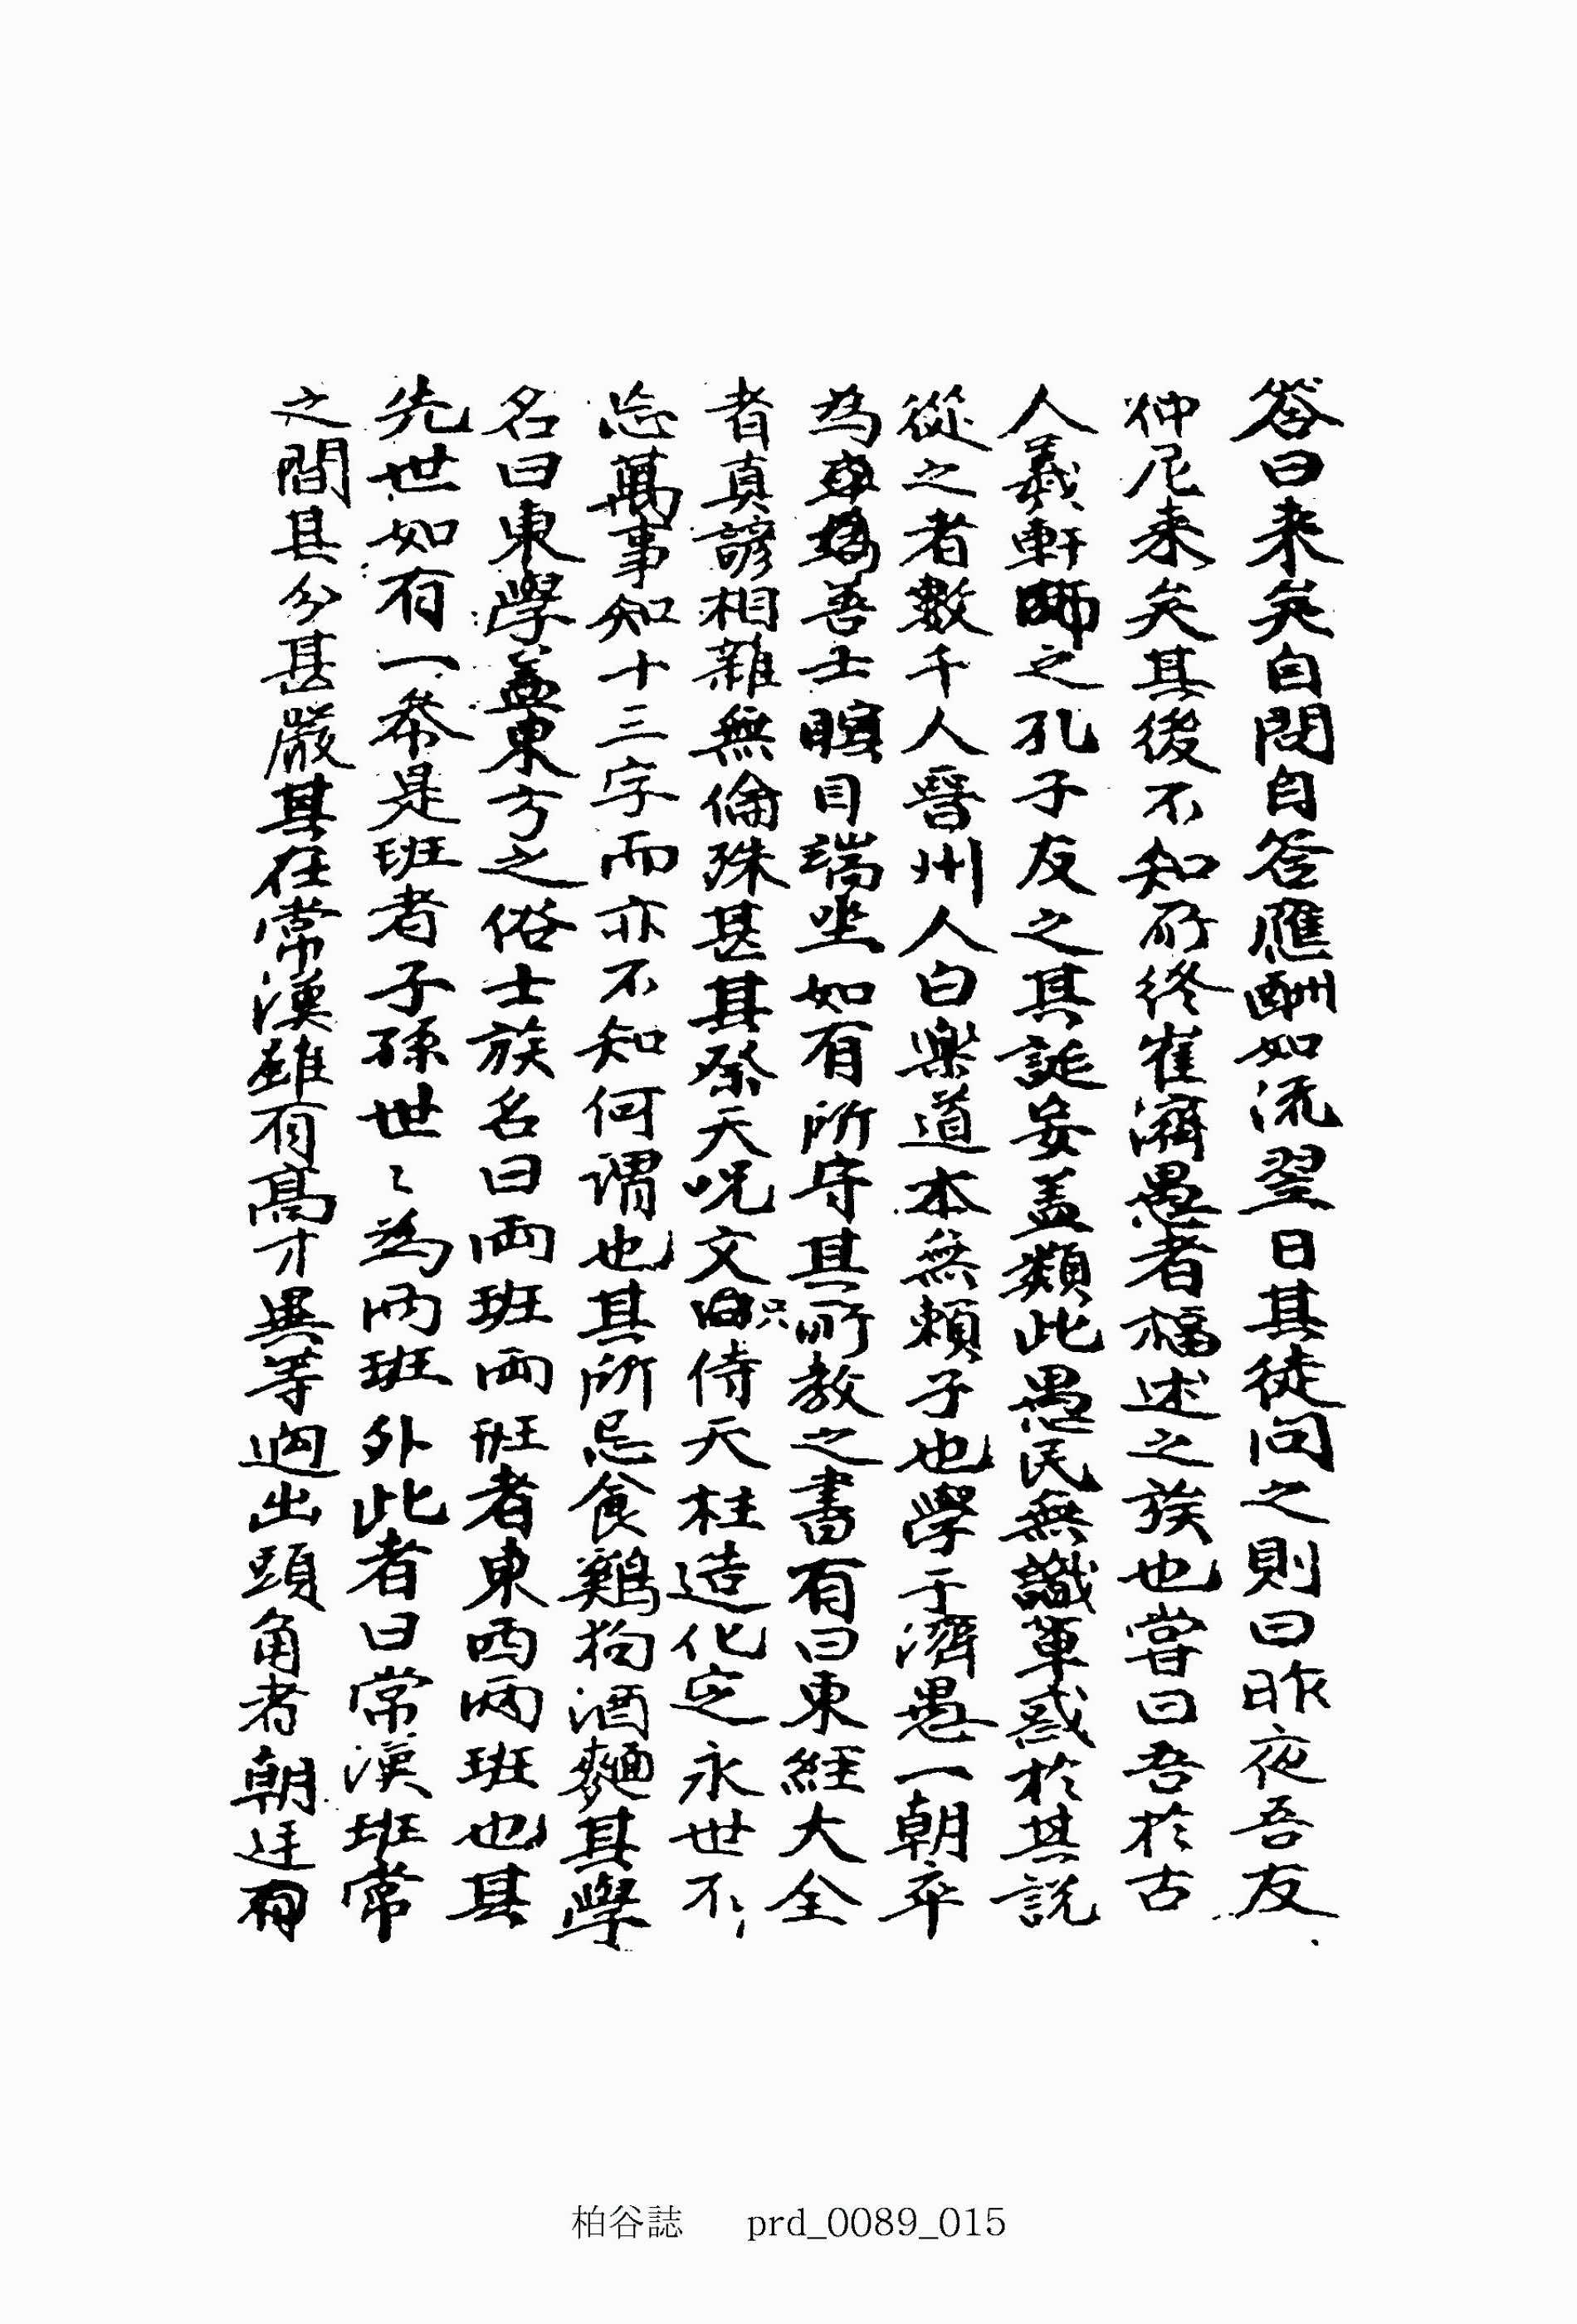 答曰来矣自問自答應酬如流翌日其徒问之則曰昨夜吾友
仲尼来矣其後不知所终崔濟愚者福述之族也嘗曰吾於古
人羲軒師之孔子友之其誕妄盖類此愚民無識輩惑於其說
從之者數千人晉州人白樂道本無頼子也學于濟愚一朝卒
為善士瞑目端坐如有所守其所教之書有曰東經大全
者真諺相雜無倫殊甚其祭天呪文只曰侍天柱造化定永世不
忘萬事知十三字而亦不知何謂也其所忌食鷄狗酒麵其學
名曰東學盖東方之俗士族名曰両班両班者東西两班也其
先世如有一叅是班者子孫世〻為両班外此者曰常漢班常
之間其分甚嚴其在常漢雖有高才異等逈出頭角者朝廷
柏谷誌 prd_0089_015